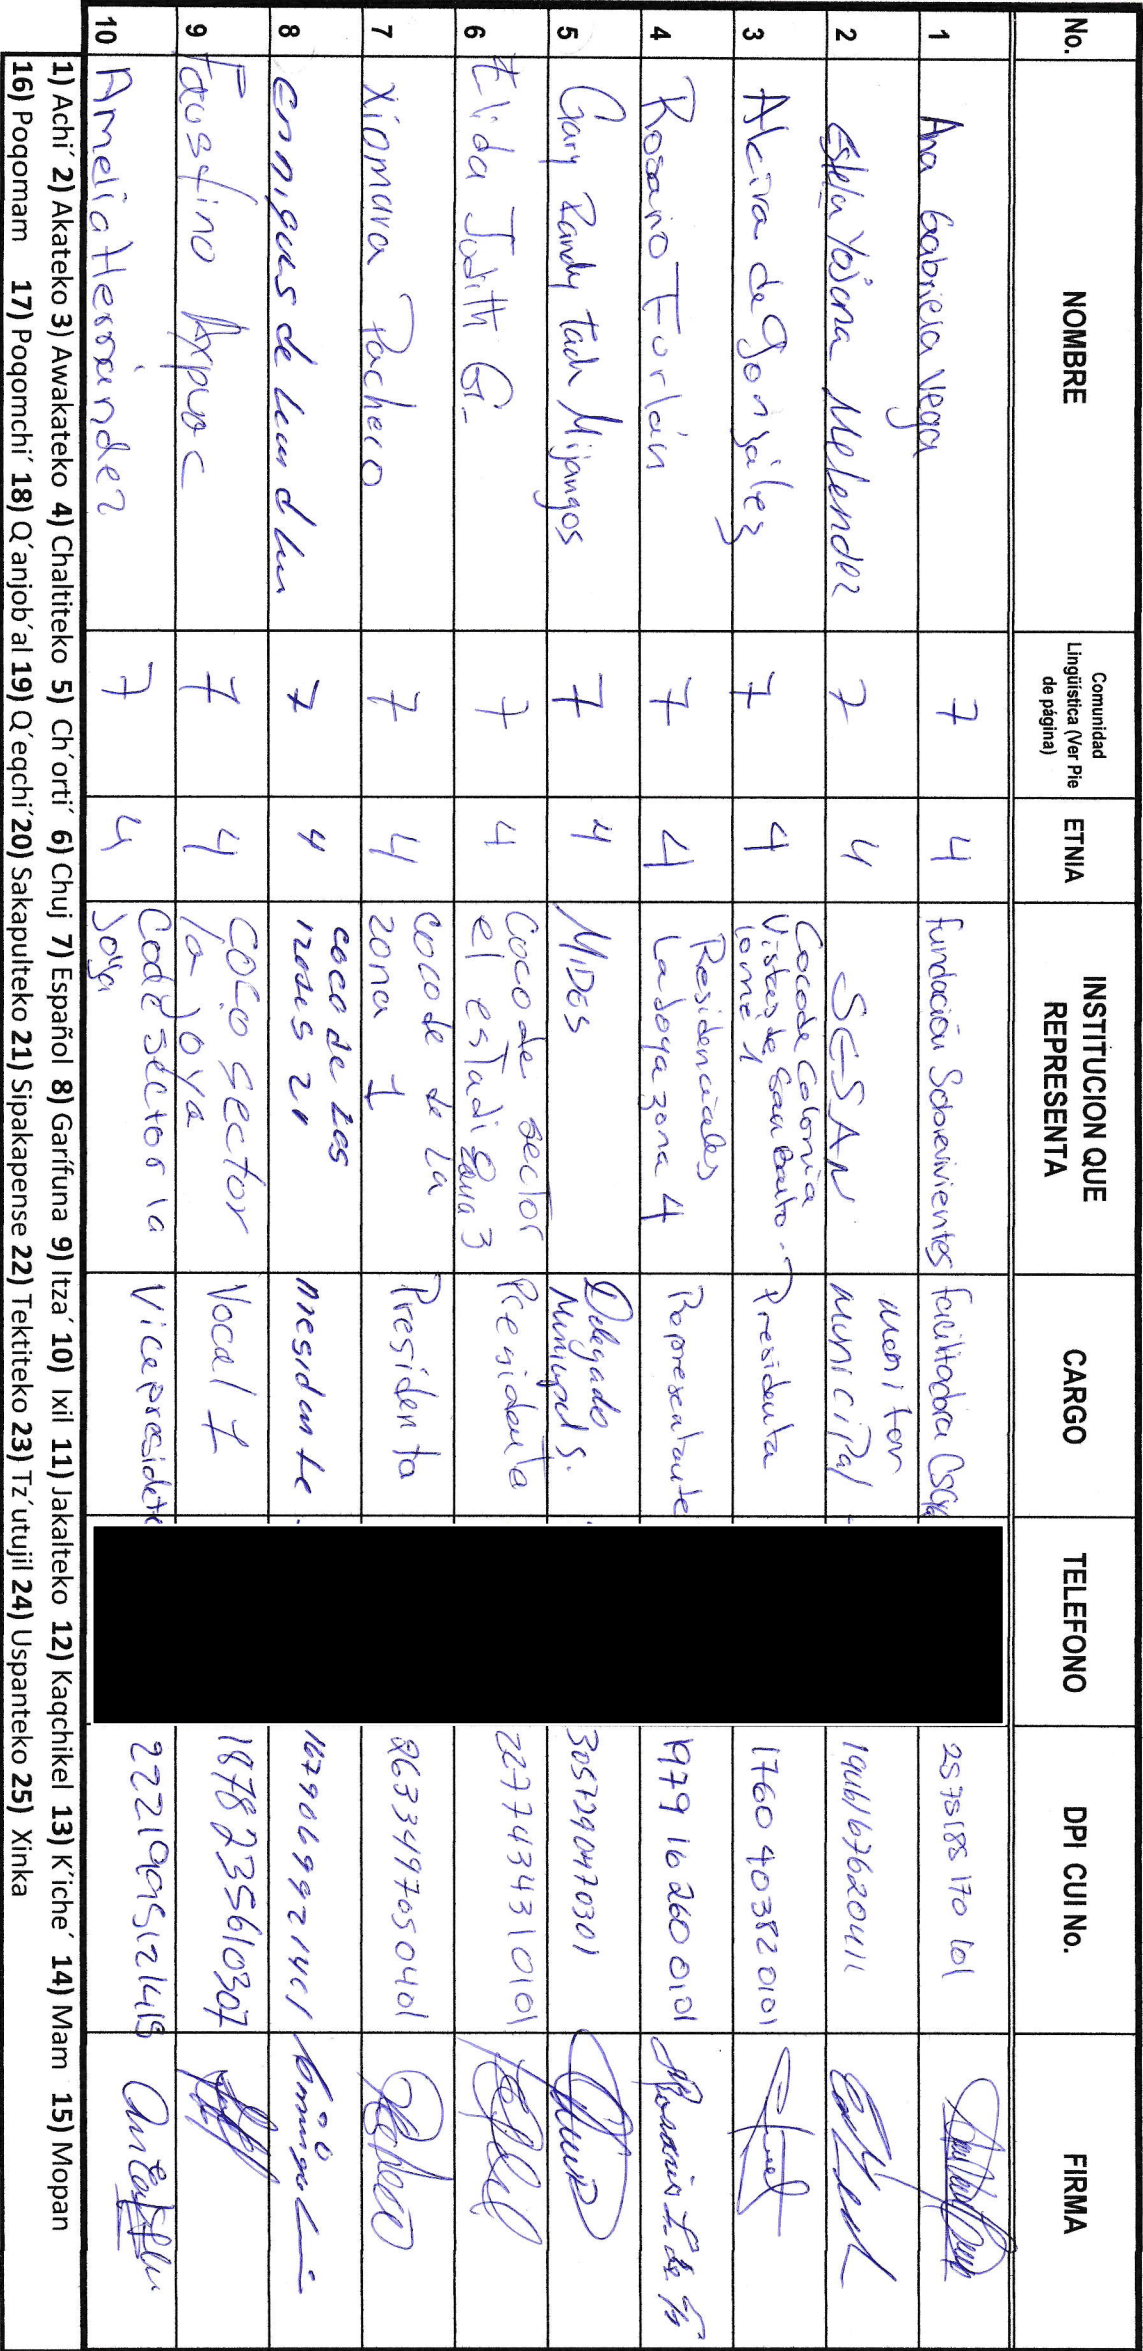 No. NOMBRE Comunidad Lingüística (Ver Pie de página) ETNIA INSTITUCION QUE REPRESENTA CARGO TELEFONO DPI CUI No. FIRMA
1 Ana Gabriela Vega 7 4 Fundación Sobrevivientes facilitadora
2 Estela Yojana Melendez 7 4 SESAN monitor municipal
3 Alcira de González 7 4 Cocode Colonia Vistas de San Presidenta 1760 40382 0101
4 Rosario Furlán 7 4 Residenciales La Joya zona 4 Representante 1979 16260 0101
5 Gary Randy Tach Mijangos 7 4 MIDES Delegado Municipal 3057290470301
6 Elida Judith G. 7 4 Cocode sector el estadio zona 3 Presidenta 2277434310101
7 Xiomara Pacheco 7 4 cocode de la zona 1 Presidenta 2633497050401
8 7 4 cocode Las Presidente 1679069921401
9 Faustino Axpuac 7 4 COCO sector la joya Vocal 1 1878235610307
10 Amelia Hernández 7 4 Code sector la Joya Vicepresidete
1) Achi´ 2) Akateko 3) Awakateko 4) Chaltiteko 5) Ch´orti´ 6) Chuj 7) Español 8) Garífuna 9) Itza´ 10) Ixil 11) Jakalteko 12) Kaqchikel 13) K´iche´ 14) Mam 15) Mopan
16) Poqomam 17) Poqomchi´ 18) Q´anjob´al 19) Q´eqchi´ 20) Sakapulteko 21) Sipakapense 22) Tektiteko 23) Tz´utujil 24) Uspanteko 25) Xinka